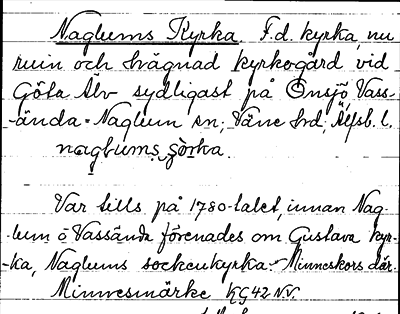 Naglums Kyrka. F.d. kyrka, nu
ruin och hägnad kyrkogård vid
Göta Älv sydligast på Önsjö, Vass-
ända-Naglum sn, Väne hd, Älfsb. l.
nagḷums ço̱rka.
Var tills på 1780-talet, innan Nag-
lum o Vassända förenades om Gustava kyr-
ka, Naglums sockenkyrka. Minneskors där.
Minnesmärke KG42 N.V.